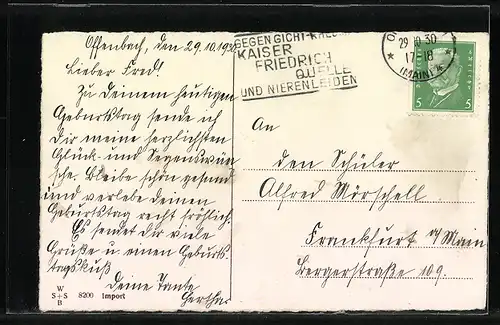 Offenbach, den 29.10.1930
Lieber Fred!
Zu Deinem heutigen
Geburtstag sende ich
Dir meine herzlichsten
Glück- und Segenswün-
sche. Bleibe schön gesund
und verlebe deinen
Geburtstag recht fröhlich.
Es sendet dir viele
Grüße u. einen Geburts-
tagskuß
Deine Tante
Gertha
W
S+S 8200 Import
B
GEGEN GICHT-
KAISER
FRIEDRICH
QUELLE
UND NIERENLEIDEN
29.10.30
17-18
(MAIN)
5 5
An
den Schüler
Alfred Mörschell
Frankfurt a/Main
Bergerstraße 109.